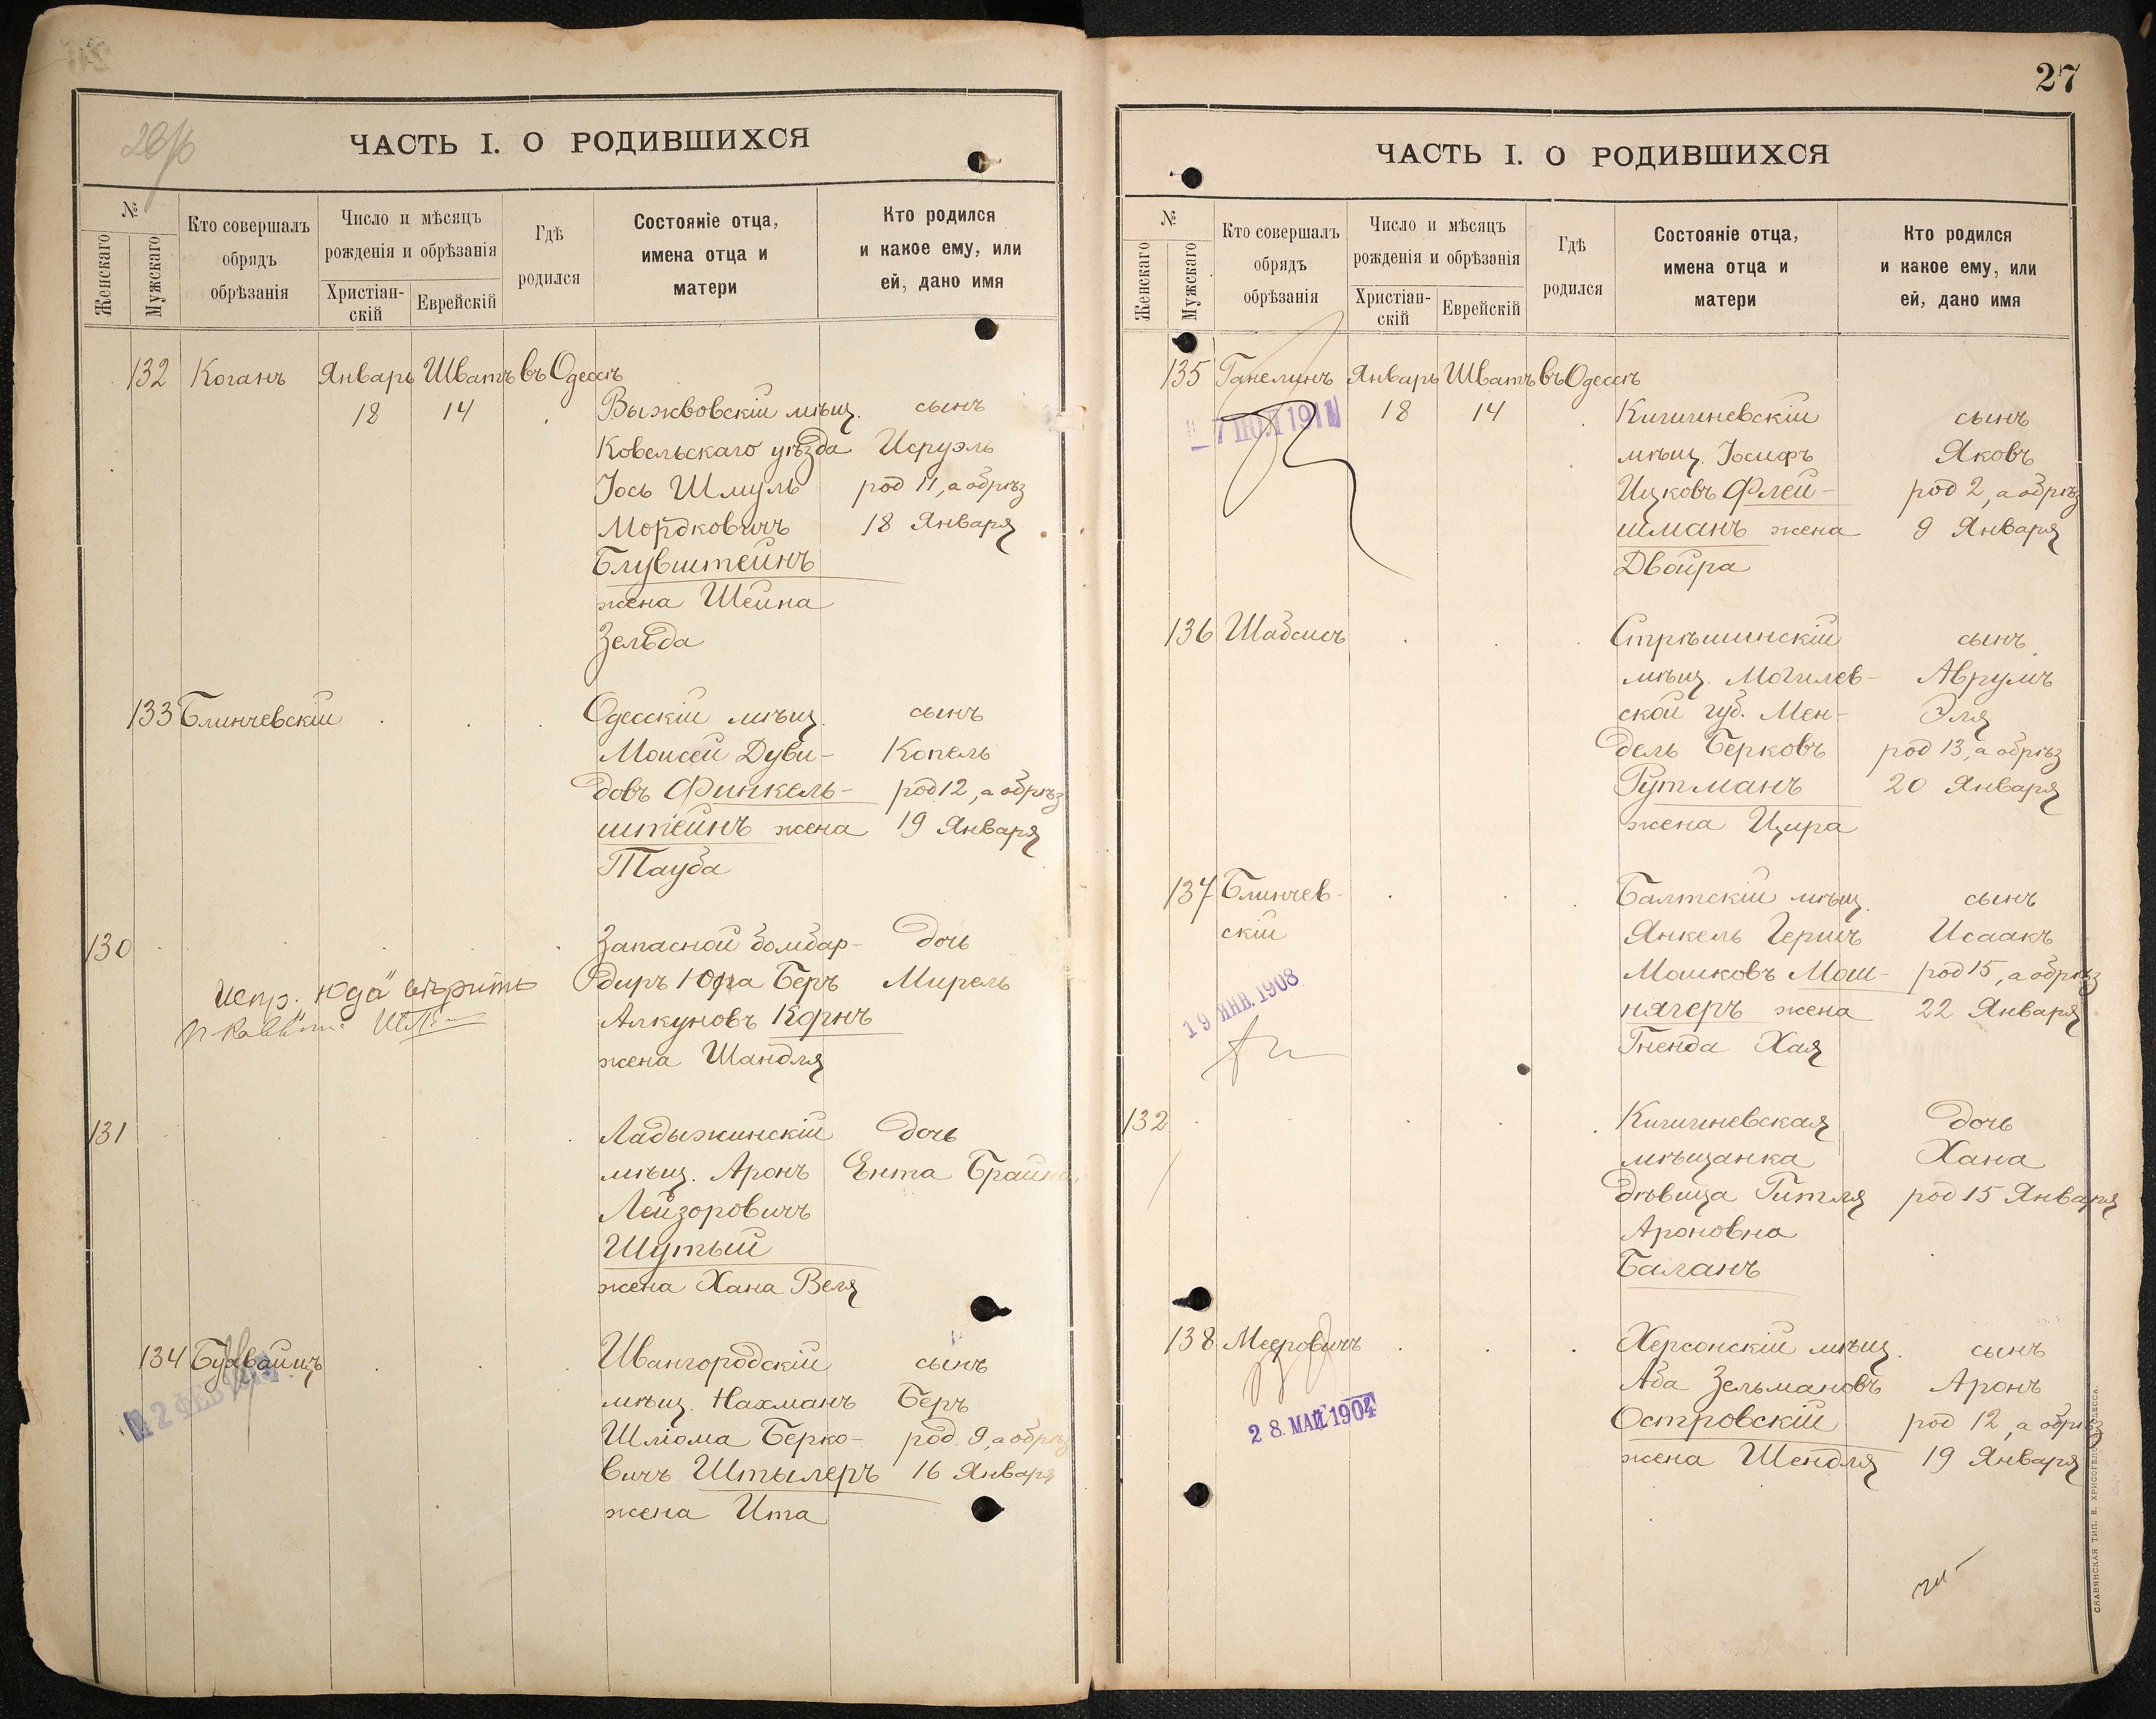 ЧАСТЬ I. О РОДИВШИХСЯ
№
Женскаго
Мужскаго
Кто совершалъ
обрядъ
обрѣзанія
Число и мѣсяцъ
рожденія и обрѣзанія
Христіан-
скій
Еврейскій
Гдѣ
родился
Состояніе отца,
имена отца и
матери
Кто родился
и какое ему, или
ей, дано имя
132 Коганъ Январь Шватъ въ Одессѣ
18 14
Выжвовскій мѣщ. сынъ
Ковельскаго уѣзда Исруэль
Іось Шмуль род 11, а обрѣз
Мордковичъ 18 Января
Блувштейнъ
жена Шейна
Зельда
133 Блинчевскій Одесскій мѣщ. сынъ
Моисей Дуви- Копель
довъ Финкель- род 12, а обрѣз
штейнъ жена 19 Января
Тауба
130 Запасной бомбар- дочь
диръ Юда Беръ Мирель
Испр. "Юда" вѣрить
Алкуновъ Корнъ
жена Шандля
131 Ладыжинскій дочь
мѣщ. Аронъ Ента Брайна
Лейзоровичъ
Шутый
жена Хана Веля
134 Бухвайцъ Ивангородскій сынъ
мѣщ. Нахманъ Беръ
Шліома Берко- род. 9, а обрѣз
вичъ Штылеръ 16 Января
жена Ита
27
ЧАСТЬ I. О РОДИВШИХСЯ
№
Женскаго
Мужскаго
Кто совершалъ
обрядъ
обрѣзанія
Число и мѣсяцъ
рожденія и обрѣзанія
Христіан-
скій
Еврейскій
Гдѣ
родился
Состояніе отца,
имена отца и
матери
Кто родился
и какое ему, или
ей, дано имя
135 Ганелинъ Январь Шватъ въ Одессѣ
18 14 Кишиневскій сынъ
7 ІЮЛ 1911
мѣщ. Іосифъ Яковъ
Ицковъ Флей- род 2, а обрѣз
шманъ жена 9 Января
Двойра
136 Шабсисъ Стрѣшинскій сынъ
мѣщ. Могилев- Аврумъ
ской губ. Мен- Эля
дель Берковъ род 13, а обрѣз
Гутманъ 20 Января
жена Цира
137 Блинчев- Балтскій мѣщ. сынъ
скій Янкель Гершъ Исаакъ
Мошковъ Мош- род 15, а обрѣз
19 ЯНВ. 1908
нягеръ жена 22 Января
Гненда Хая
132 Кишиневская дочь
мѣщанка Хана
дѣвица Гитля род 15 Января
Ароновна
Баланъ
138 Мееровичъ Херсонскій мѣщ. сынъ
Аба Зельмановъ Аронъ
28. МАЙ 1904
Островскій род 12, а обрѣз
жена Шендля 19 Января
СЛАВЯНСКАЯ ТИП. Е. ХРИСОГЕЛОСЪ ОДЕССА.